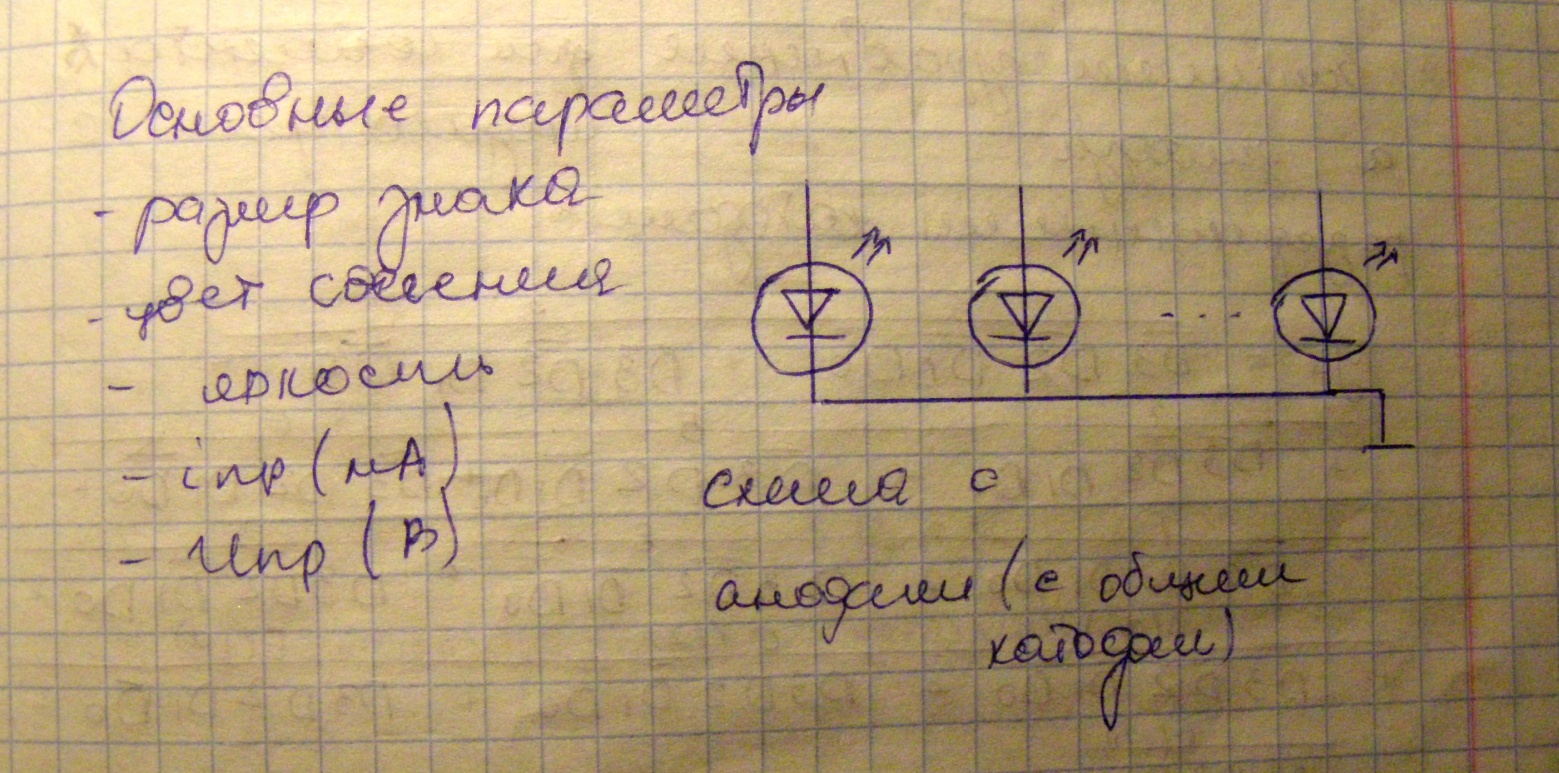 Основные параметры
- размер знака
- цвет свечения
- яркость
- iпр (мА)
- Uпр (В)
схема с
анодами (с общим
катодом)